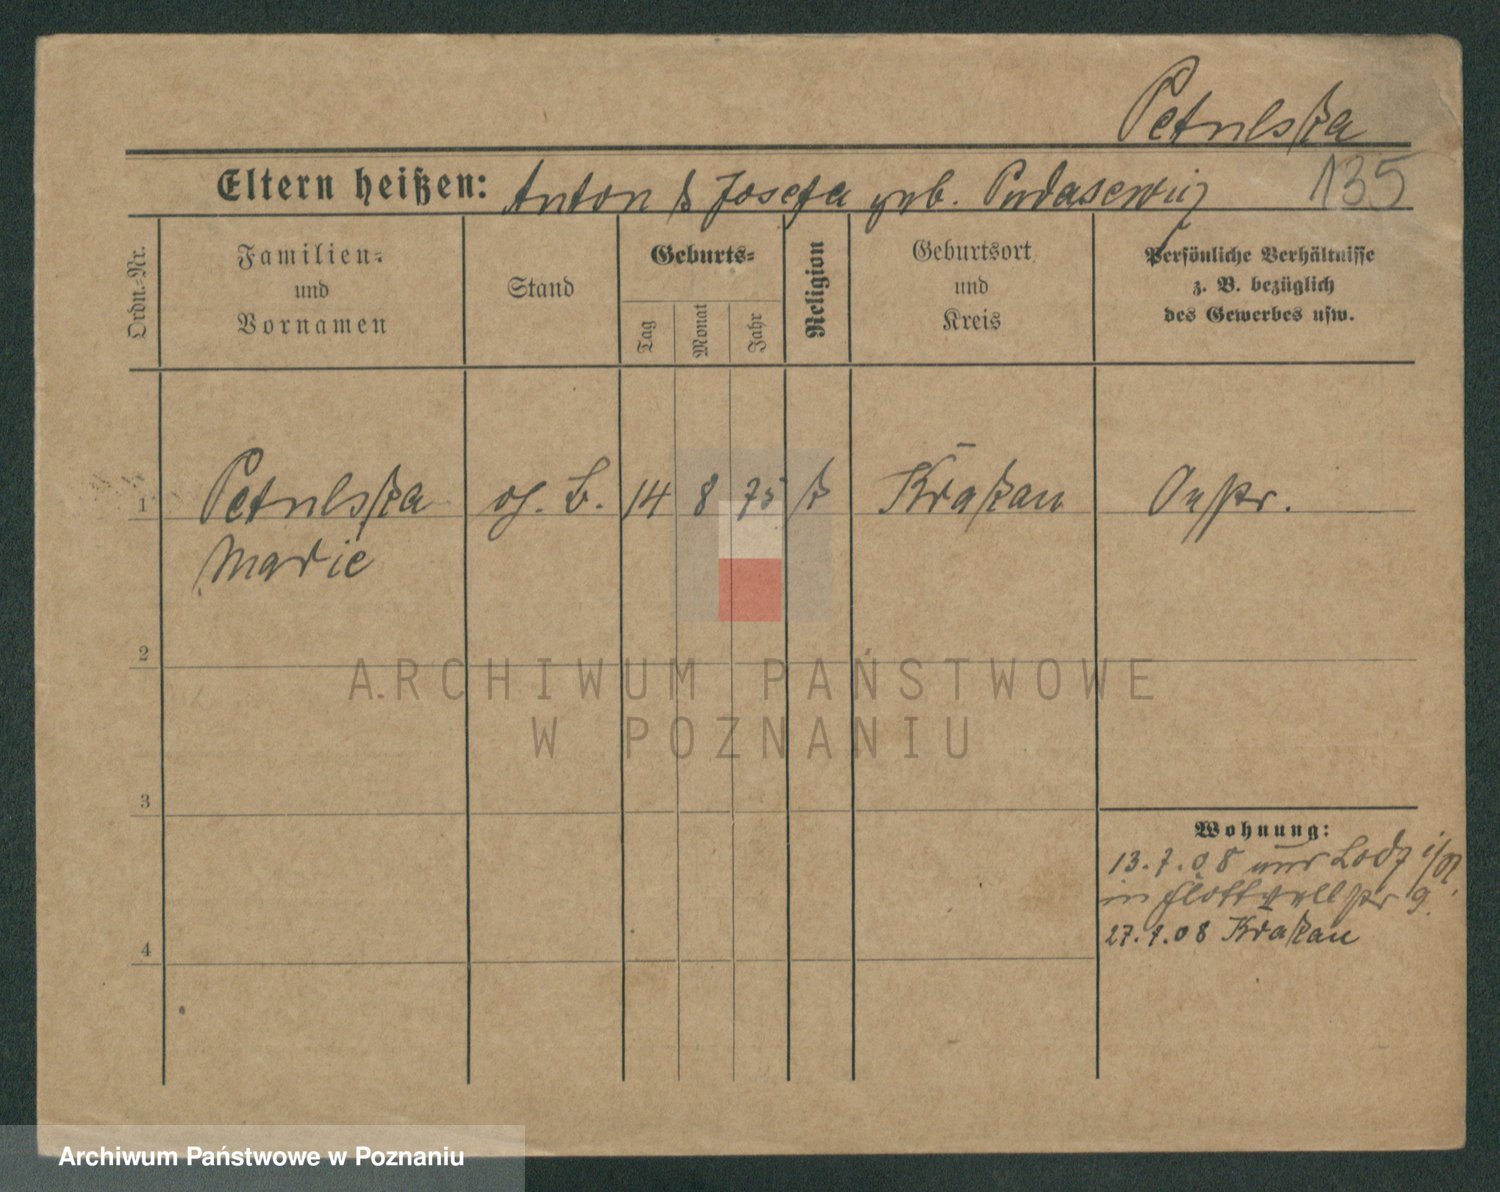 Petulska
Eltern heißen: Anton & Josefa geb. 135
Ordn.-Nr.
Familien-
und
Vornamen
Stand
Geburts-
Tag
Monat
Jahr
Religion
Geburtsort
und
Kreis
Persönliche Verhältnisse
z. B. bezüglich
des Gewerbes usw.
1 Petulska 14 8 75 k Krakau
Marie
2
ARCHIWUM PAŃSTWOWE
W POZNANIU
3
Wohnung:
13.7.08 Lodz
in Flottwellstr 9.
4
08 Krakau
Archiwum Państwowe w Poznaniu